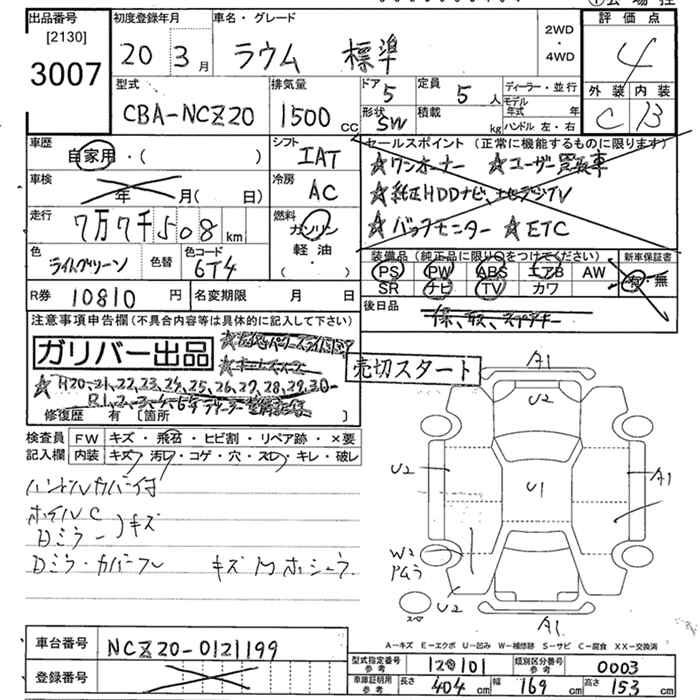 出品番号 [2130] 3007
初度登録年月 20 3 月
車名・グレード ラウム 標準
2WD・4WD
評価点 4
外装 C 内装 B
型式 CBA-NCZ20
排気量 1500 cc
ドア 5 形状 SW
定員 5 人 積載 kg
ディーラー・並行
モデル年式 年
ハンドル 左・右
車歴 自家用・( )
シフト IAT
車検 年 月( 日)
冷房 AC
走行 7万7千508 km
燃料 ガソリン 軽油・( )
色 ライトグリーン 色替
色コード 6T4
R券 10810 円
名変期限 月 日
セールスポイント (正常に機能するものに限ります)
★ワンオーナー ★ユーザー買取車
★純正HDDナビ、地デジTV
★バックモニター ★ETC
装備品 (純正品に限り○をつけてください)
PS PW ABS エアB AW
SR ナビ TV カワ
新車保証書 有・無
後日品 保、取、スペアキー
注意事項申告欄(不具合内容等は具体的に記入して下さい)
ガリバー出品
★H20、21、22、23、24、25、26、27、28、29、30-
R1、2、3、4、
修復歴 有 〔箇所
売切スタート
検査員 FW キズ・飛石・ヒビ割・リペア跡・×要
記入欄 内装 キズ 汚レ・コゲ・穴・スレ・キレ・破レ
ハンドルカバー付
ホイルC
Dミラー )キズ
Dミラ・カバーフレ キズ M ホシュウ
A1
U2
U2
U1
A1
W2
U2
スペア
A1
A-キズ E-エクボ U-凹み W-補修跡 S-サビ C-腐食 XX-交換済
車台番号 NCZ20-0121199
登録番号
型式指定番号 参考 12101
類別区分番号 参考 0003
車庫証明用 参考 長さ 404 cm 幅 169 cm 高さ 153 cm